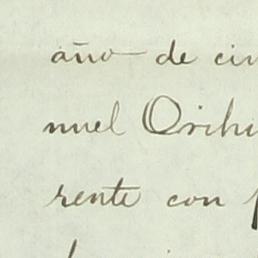 año de cin
nuel Orihu
rente con p